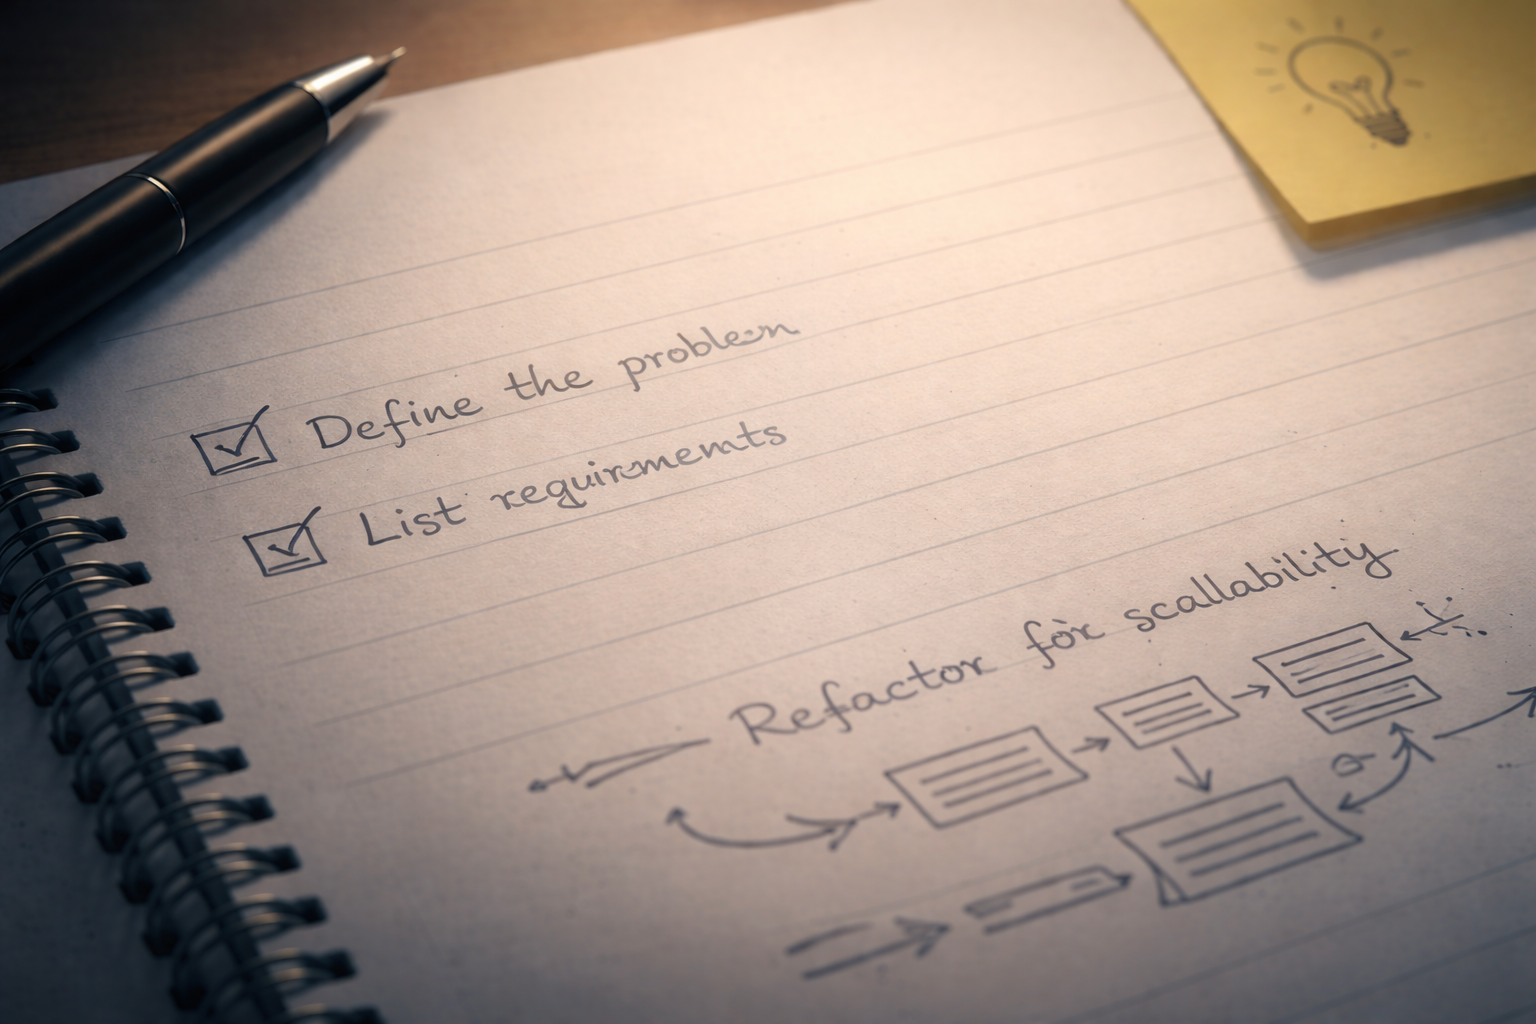 Define the problem
List requirements
Refactor for scallability